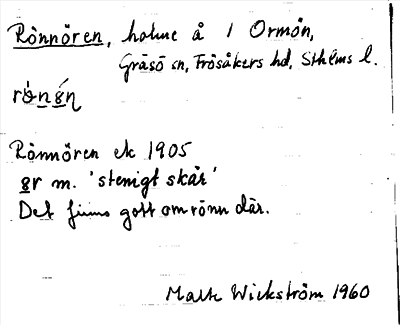 Rönnören, holme å / Ormön,
Gräsö sn, Frösåkers hd, Sthlms l.
Rönnören ek 1905
ør m. 'stenigt skär'
Det finns gott om rönn där.
Malte Wickström 1960